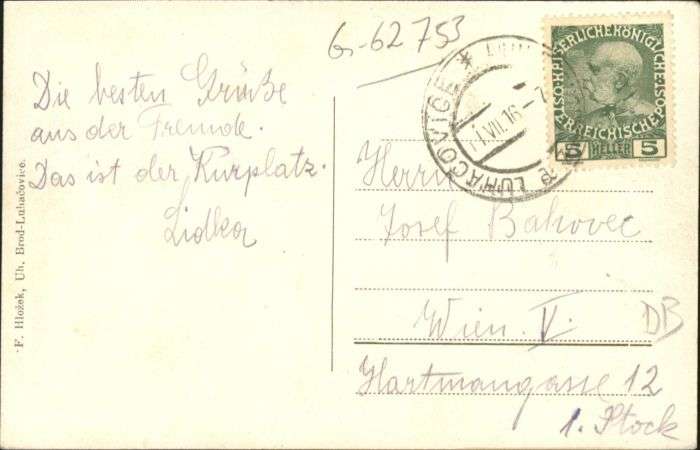 G-62753
Die besten Grüße
aus der Fremde.
Das ist der Kurplatz.
Lidka
F. Hložek, Uh. Brod-Luhačovice.
KAISERLICHE KÖNIGLICHE
ÖSTERREICHISCHE POST
5 HELLER 5
LUHAČOVICE
VII.16
Herrn
Josef Bakovec
Wien. V.
DB
Hartmanngasse 12
1. Stock